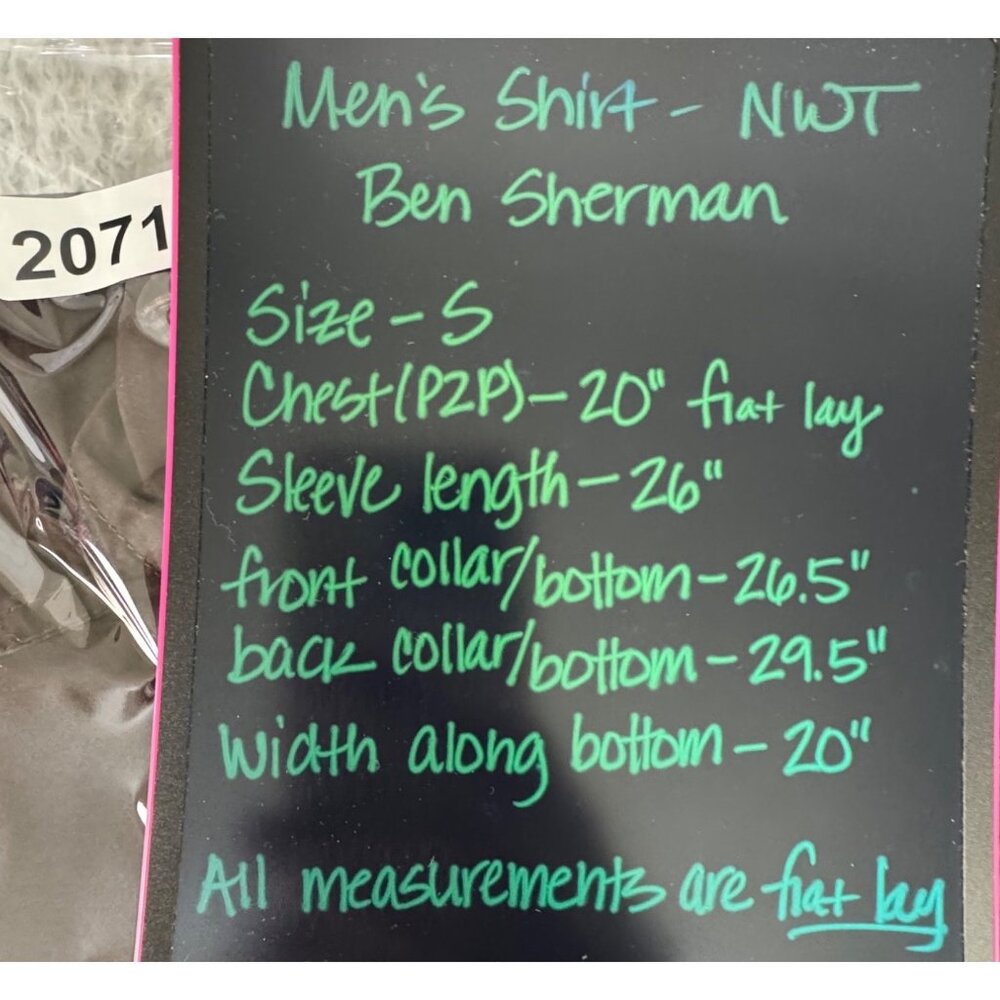 Men's Shirt - NWT
Ben Sherman
2071
Size - S
Chest (P2P) - 20" flat lay
Sleeve length - 26"
front collar/bottom - 26.5"
back collar/bottom - 29.5"
Width along bottom - 20"
All measurements are flat lay